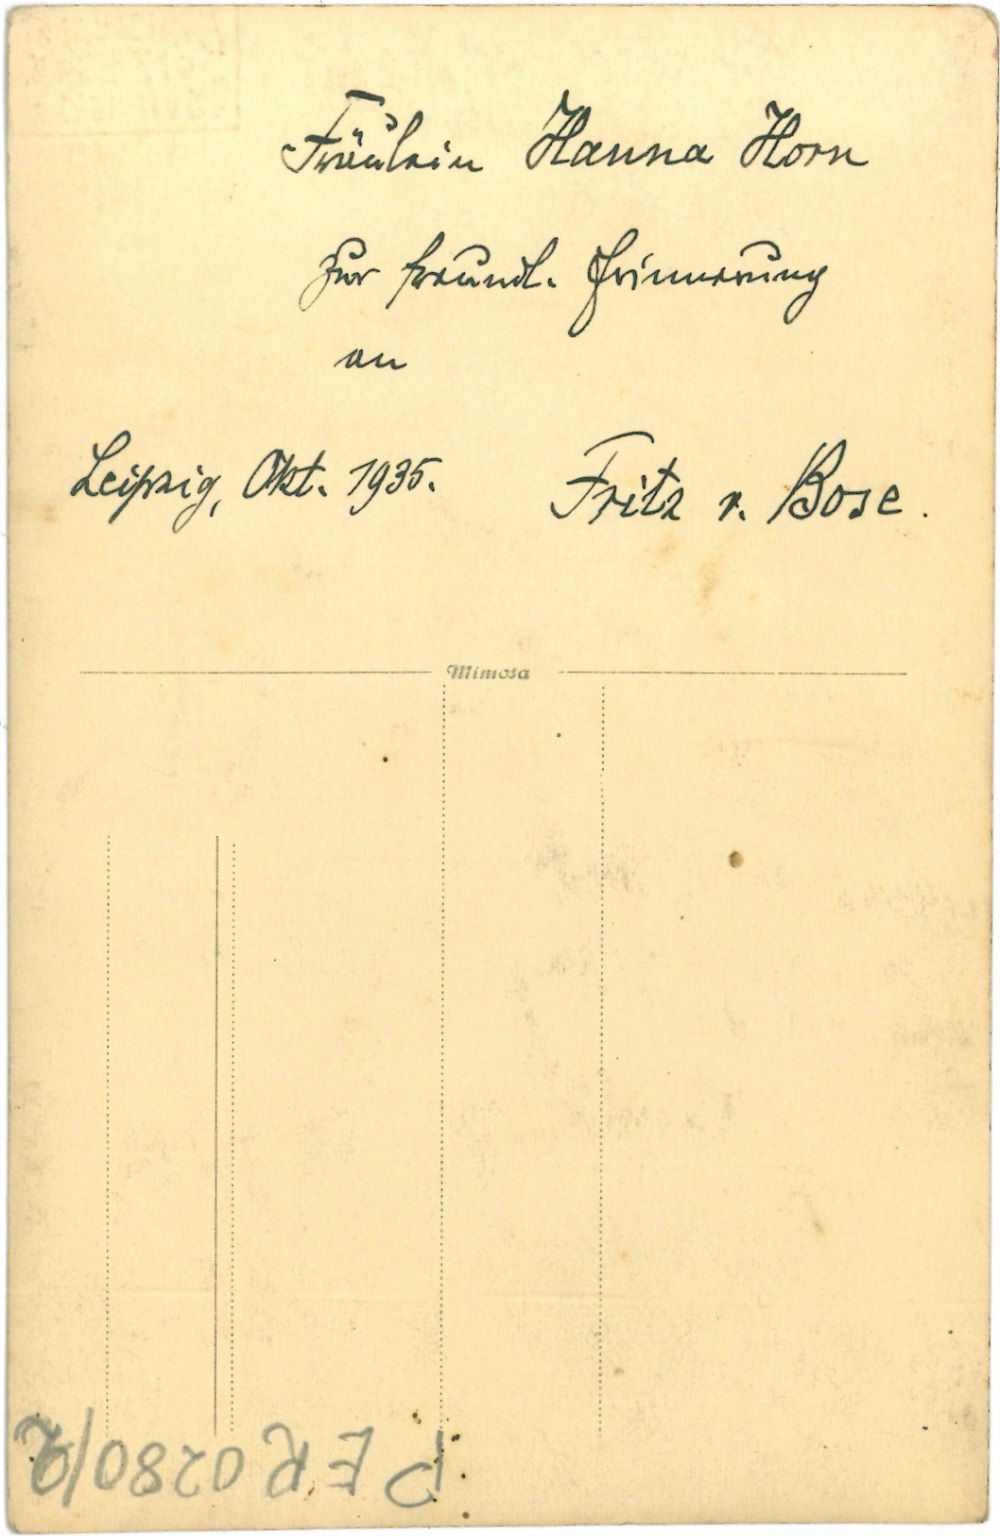 Fräulein Hanna Horn
zur freundl. Erinnerung
an
Leipzig, Okt. 1935. Fritz v. Bose.
Mimosa
PER 0280/2